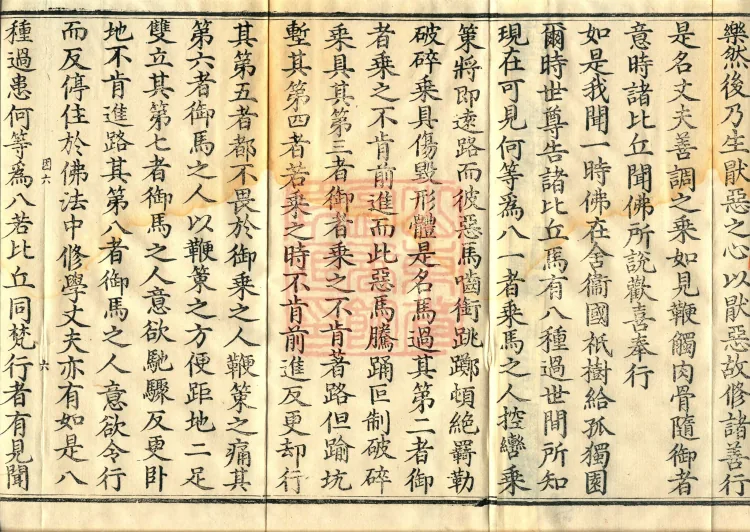 樂然後乃生猒惡之心以猒惡故修諸善行
是名丈夫善調之乘如見鞭觸肉骨隨御者
意時諸比丘聞佛所說歡喜奉行
如是我聞一時佛在舍衞國祇樹給孤獨園
爾時世尊告諸比丘馬有八種過世間所知
現在可見何等為八一者乘馬之人控轡乘
策將即遠路而彼惡馬嚙銜跳躑頓絕羇勒
破碎乘具傷毀形體是名馬過其第二者御
者乘之不肯前進而此惡馬騰踊叵制破碎
乘具其第三者御者乘之不肯著路但踰坑
塹其第四者若乘之時不肯前進反更却行
其第五者都不畏於御乘之人鞭策之痛其
第六者御馬之人以鞭策之方便距地二足
雙立其第七者御馬之人意欲馳驟反更卧
地不肯進路其第八者御馬之人意欲令行
而反停住於佛法中修學丈夫亦有如是八
六
種過患何等為八若比丘同梵行者有見聞